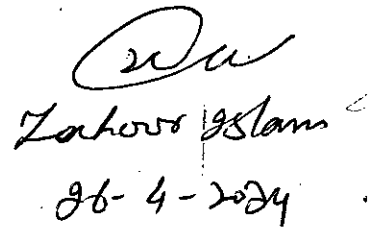 Zahoor Islam
26-4-2024